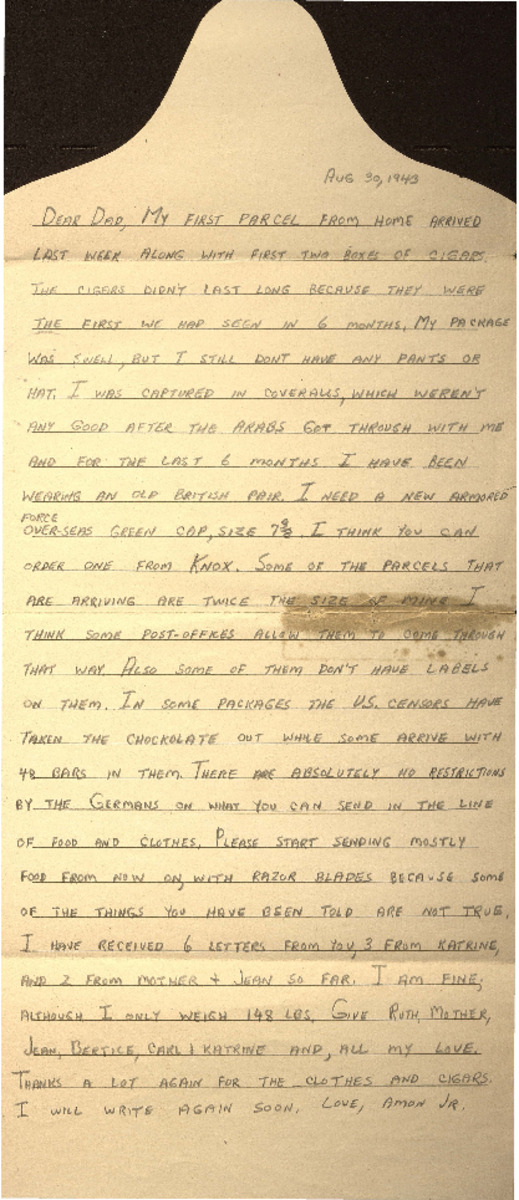 AUG 30, 1943
DEAR DAD, MY FIRST PARCEL FROM HOME ARRIVED
LAST WEEK ALONG WITH FIRST TWO BOXES OF CIGARS.
THE CIGARS DIDN'T LAST LONG BECAUSE THEY WERE
THE FIRST WE HAD SEEN IN 6 MONTHS, MY PACKAGE
WAS SWELL, BUT I STILL DONT HAVE ANY PANTS OR
HAT. I WAS CAPTURED IN COVERALLS, WHICH WEREN'T
ANY GOOD AFTER THE ARABS GOT THROUGH WITH ME
AND FOR THE LAST 6 MONTHS I HAVE BEEN
WEARING AN OLD BRITISH PAIR. I NEED A NEW ARMORED
FORCE
OVER-SEAS GREEN CAP, SIZE 7 3/8. I THINK YOU CAN
ORDER ONE FROM KNOX. SOME OF THE PARCELS THAT
ARE ARRIVING ARE TWICE THE SIZE OF MINE I
THINK SOME POST-OFFICES ALLOW THEM TO COME THROUGH
THAT WAY. ALSO SOME OF THEM DON'T HAVE LABELS
ON THEM. IN SOME PACKAGES THE U.S. CENSORS HAVE
TAKEN THE CHOCKOLATE OUT WHILE SOME ARRIVE WITH
48 BARS IN THEM. THERE ARE ABSOLUTELY NO RESTRICTIONS
BY THE GERMANS ON WHAT YOU CAN SEND IN THE LINE
OF FOOD AND CLOTHES. PLEASE START SENDING MOSTLY
FOOD FROM NOW ON, WITH RAZOR BLADES BECAUSE SOME
OF THE THINGS YOU HAVE BEEN TOLD ARE NOT TRUE.
I HAVE RECEIVED 6 LETTERS FROM YOU, 3 FROM KATRINE,
AND 2 FROM MOTHER + JEAN SO FAR. I AM FINE,
ALTHOUGH I ONLY WEIGH 148 LBS. GIVE RUTH, MOTHER,
JEAN, BERTICE, CARL, KATRINE AND, ALL MY LOVE.
THANKS A LOT AGAIN FOR THE CLOTHES AND CIGARS.
I WILL WRITE AGAIN SOON. LOVE, AMON JR.